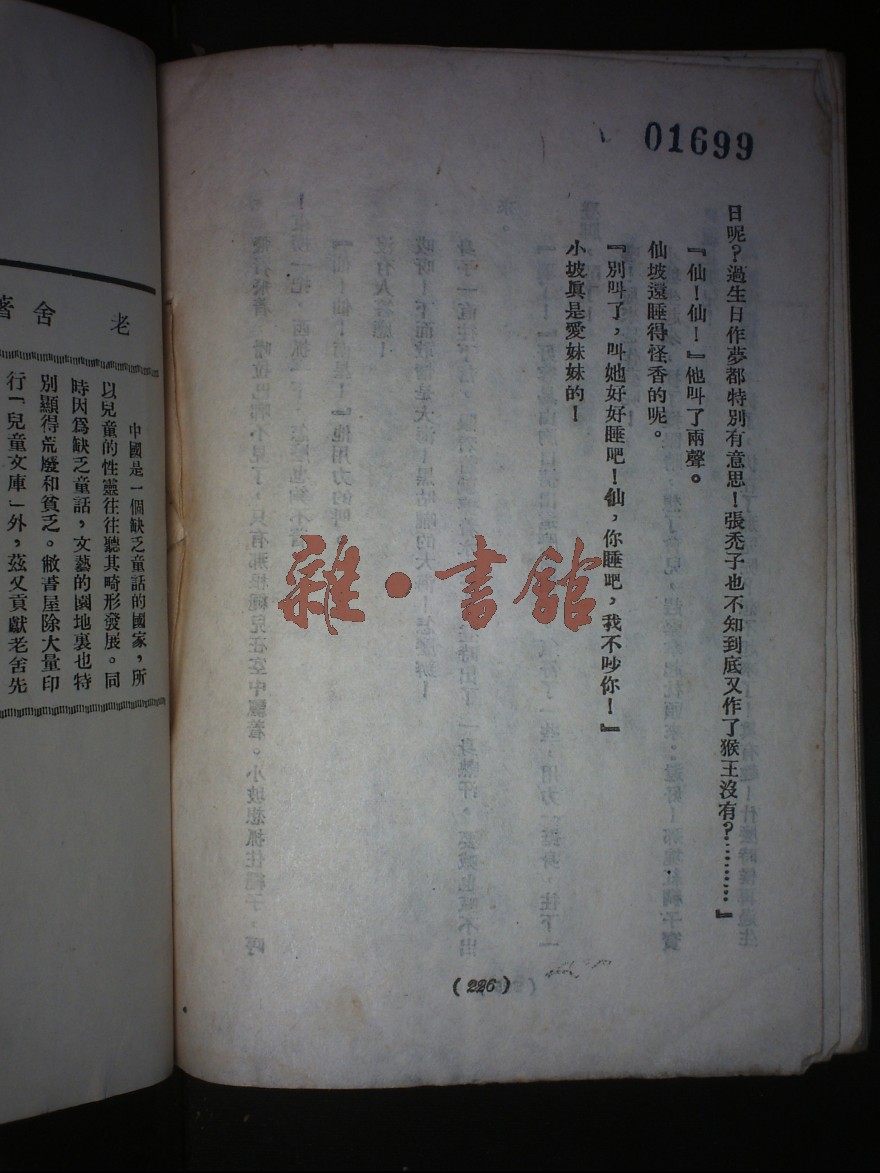 01699
日呢?過生日作夢都特別有意思!張禿子也不知到底又作了猴王沒有?………』
『仙!仙!』他叫了兩聲。
仙坡還睡得怪香的呢。
『別叫了,叫她好好睡吧!仙,你睡吧,我不吵你!』
小坡眞是愛妹妹的!
(226)
雜·書館
老舍著
中國是一個缺乏童話的國家,所
以兒童的性靈往往聽其畸形發展。同
時因爲缺乏童話,文藝的園地裏也特
別顯得荒廢和貧乏。敝書屋除大量印
行「兒童文庫」外,茲又貢獻老舍先